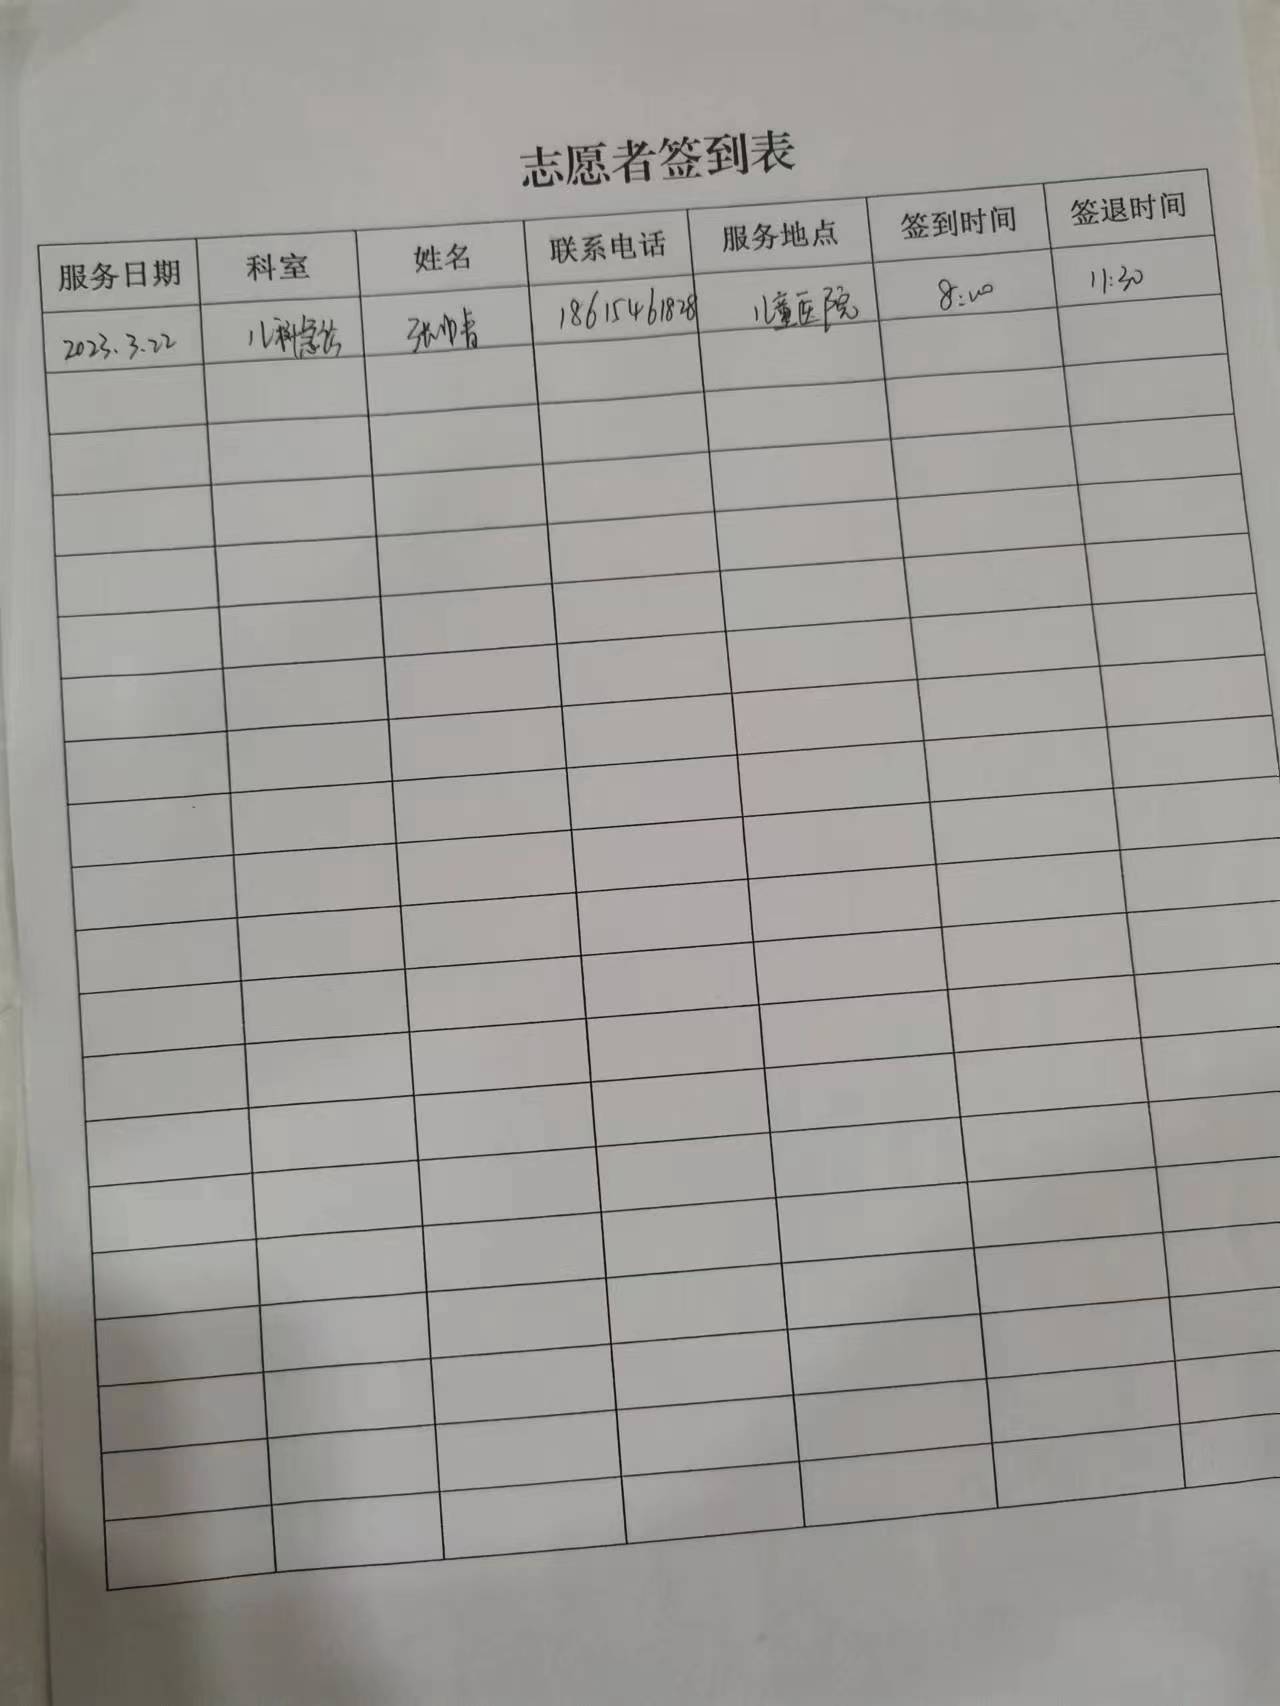 志愿者签到表
服务日期 科室 姓名 联系电话 服务地点 签到时间 签退时间
2023.3.22 儿科急诊 张 18615461828 儿童医院 8:00 11:30